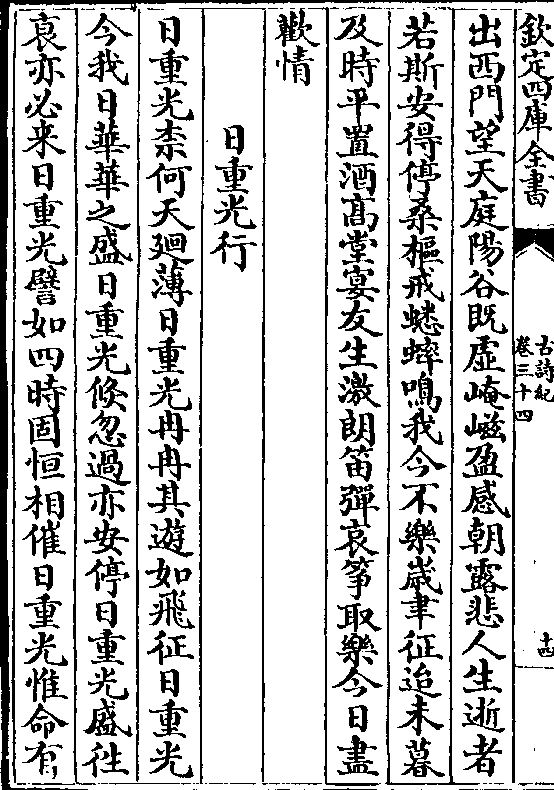 欽定四庫全書
古詩紀
卷三十四
十四
出西門望天庭陽谷既虚崦嵫盈感朝露悲人生逝者
若斯安得停桑樞戒蟋蟀鳴我今不樂嵗聿征迨未暮
及時平置酒髙堂宴友生激朗笛彈哀筝取樂今日盡
歡情
日重光行
日重光柰何天迴薄日重光冉冉其遊如飛征日重光
今我日華華之盛日重光倐忽過亦安停日重光盛徃
衰亦必来日重光譬如四時固恒相催日重光惟命有